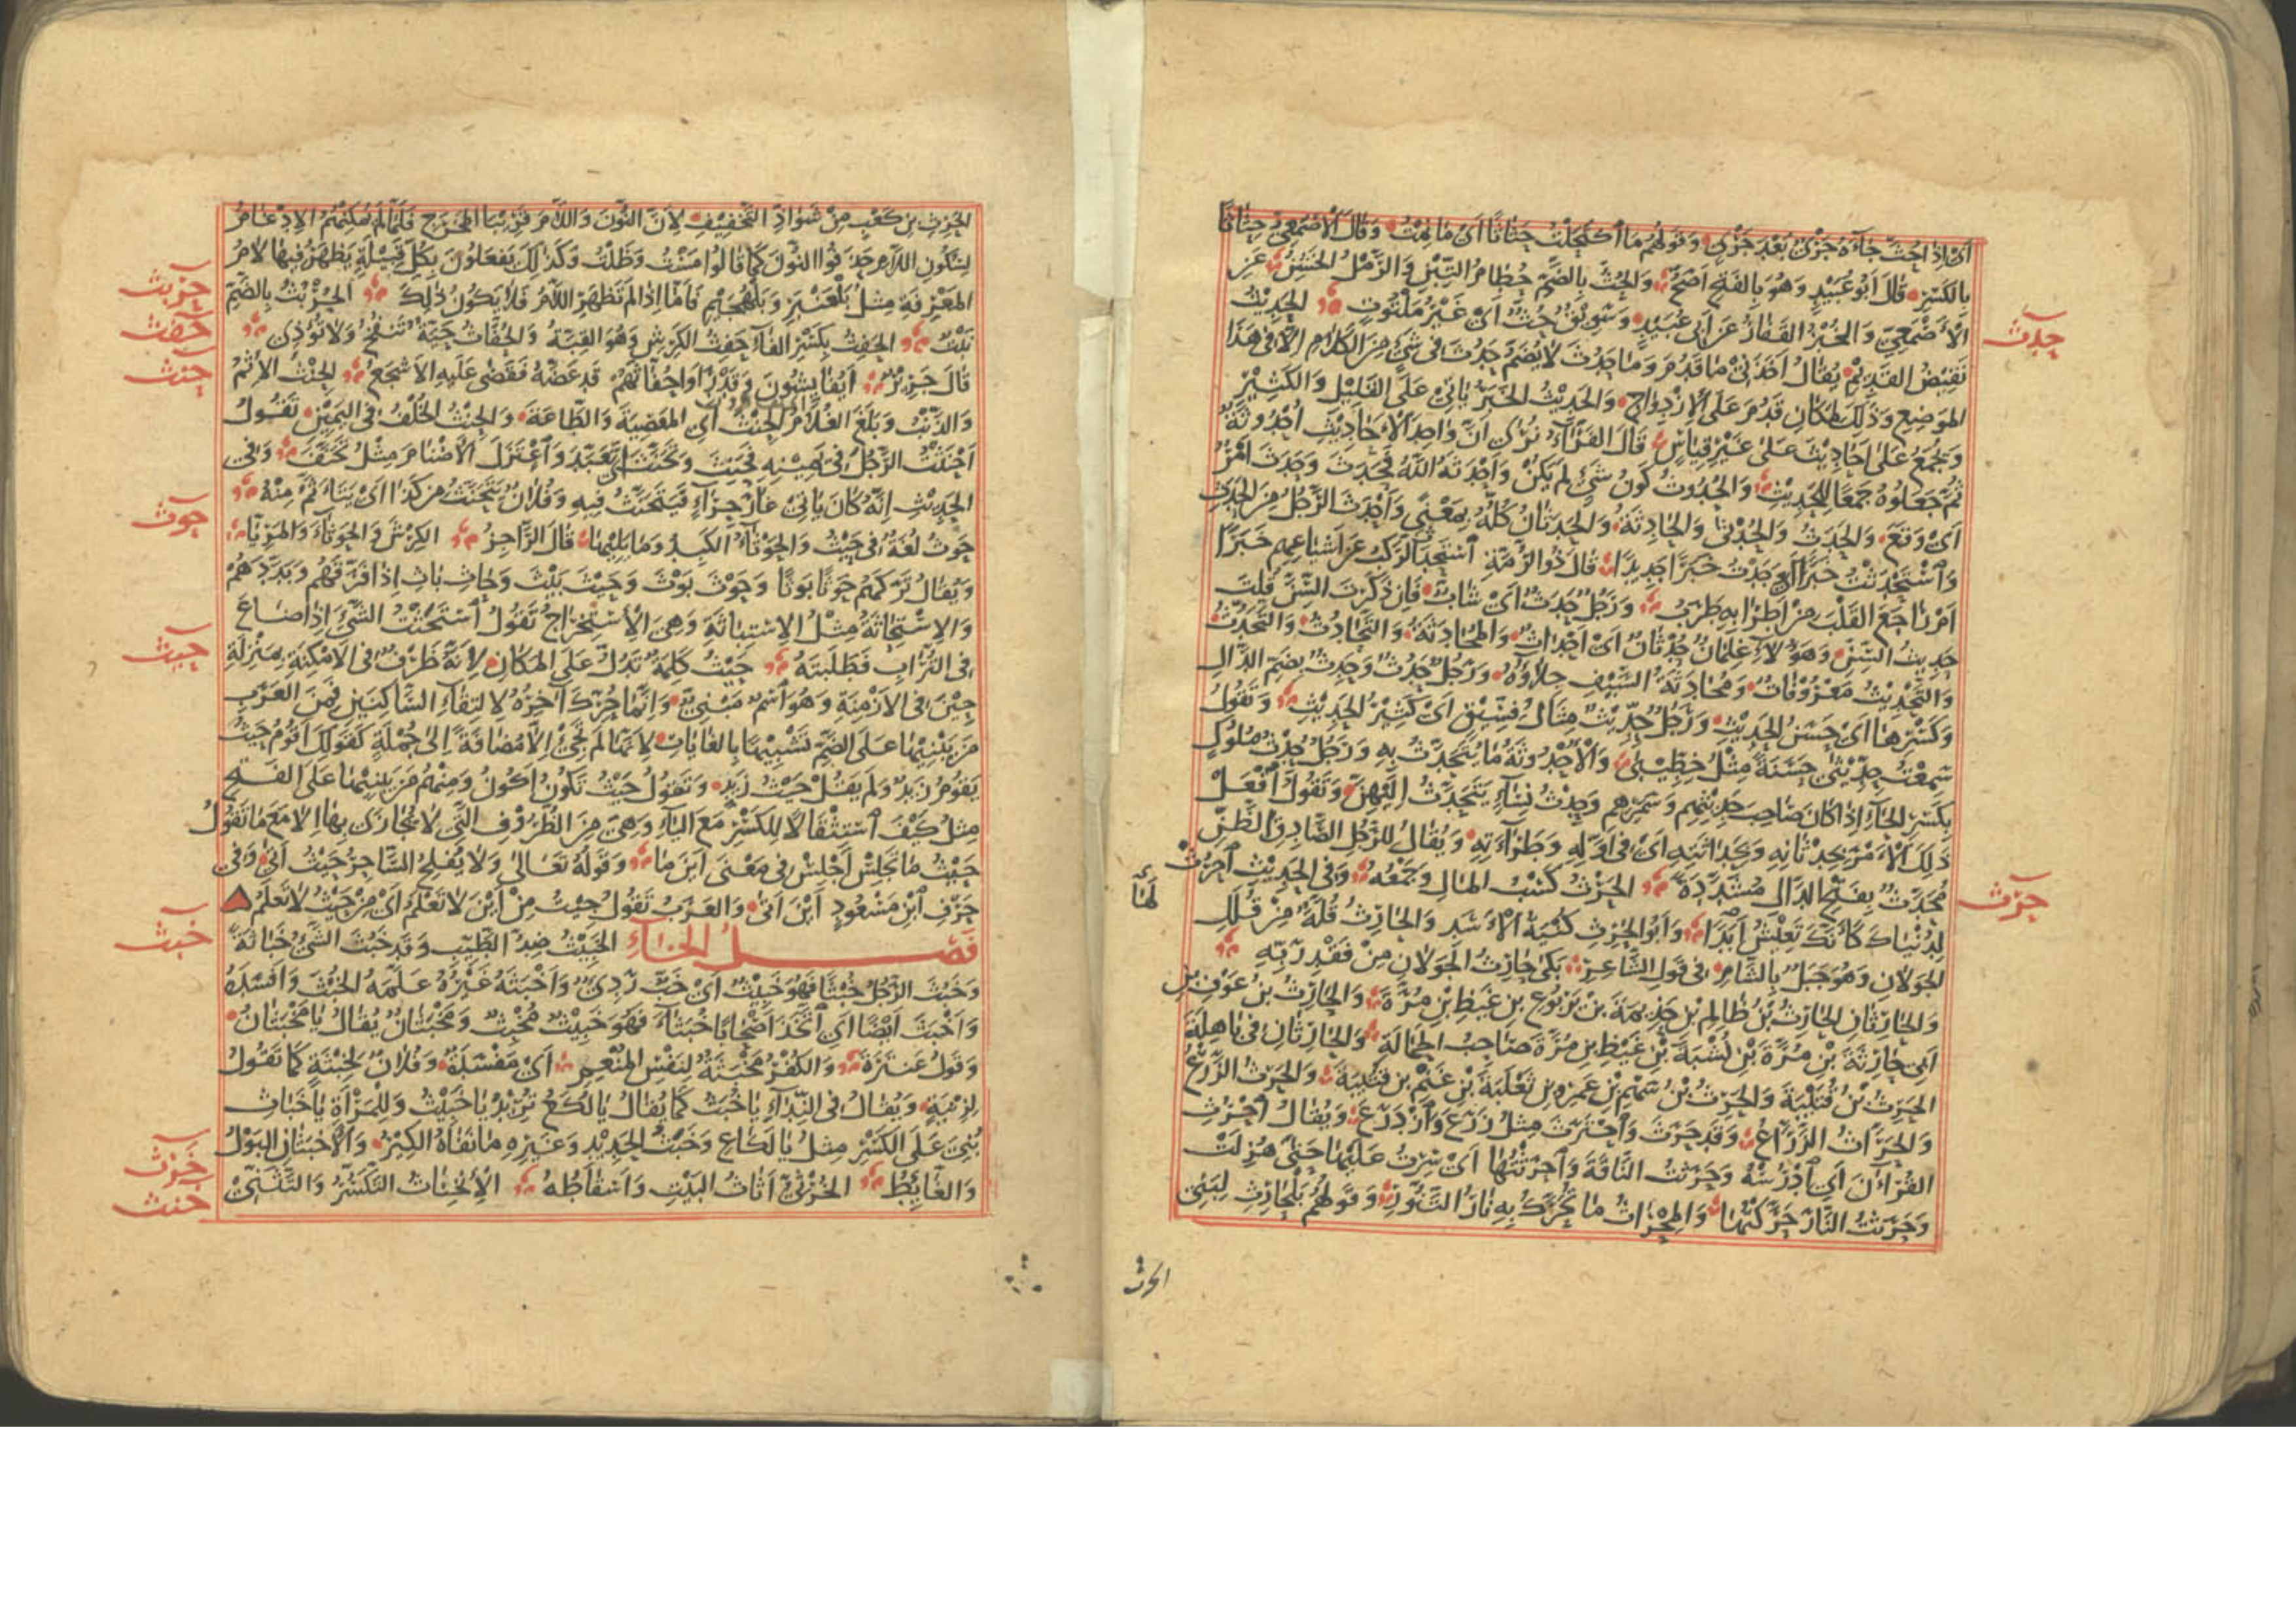 اَىْ اِذَا جُثَّ جَآءَهُ جَرْىٌ بَعْدَ جَرْىٍ وَقَوْلُهُمْ مَا اكْتَحَلْتُ حَثَاثًا اَىْ مَا نِمْتُ وَقَالَ الْاَصْمَعِىُّ حِثَاثًا
بِالْكَسْرِ قَالَ اَبُو عُبَيْدٍ وَهُوَ بِالْفَتْحِ اَصَحُّ وَالْحُثُّ بِالضَّمِّ حُطَامُ التِّبْنِ وَالرَّمْلُ الْخَشِنُ عَنِ
الْاَصْمَعِىِّ وَالْخُبْزُ الْقَفَارُ عَنْ اَبِى عُبَيْدٍ وَسَوِيقٌ حُثٌّ اَىْ غَيْرُ مَلْتُوتٍ الْحَدِيْثُ
حدث
نَقِيْضُ الْقَدِيْمِ يُقَالُ اَخَذَنِىْ مَا قَدُمَ وَمَا حَدُثَ لَا يُضَمُّ حَدُثَ فِى شَىْءٍ مِنَ الْكَلَامِ اِلَّا فِى هٰذَا
الْمَوْضِعِ وَذٰلِكَ لِمَكَانِ قَدُمَ عَلَى الْاِزْدِوَاجِ وَالْحَدِيْثُ الْخَبَرُ يَاْتِىْ عَلَى الْقَلِيْلِ وَالْكَثِيْرِ
وَيُجْمَعُ عَلٰى اَحَادِيْثَ عَلٰى غَيْرِ قِيَاسٍ قَالَ الْفَرَّآءُ نُرٰى اَنَّ وَاحِدَ الْاَحَادِيْثِ اُحْدُوثَةٌ
ثُمَّ جَعَلُوهُ جَمْعًا لِلْحَدِيْثِ وَالْحُدُوثُ كَوْنُ شَىْءٍ لَمْ يَكُنْ وَاَحْدَثَهُ اللّٰهُ فَحَدَثَ وَحَدَثَ اَمْرٌ
اَىْ وَقَعَ وَالْحَدَثُ وَالْحُدْثٰى وَالْحَادِثَةُ وَالْحَدَثَانُ كُلُّهُ بِمَعْنًى وَاَحْدَثَ الرَّجُلُ مِنَ الْحَدَثِ
وَاسْتَحْدَثْتُ خَبَرًا اَىْ وَجَدْتُ خَبَرًا جَدِيْدًا قَالَ ذُو الرُّمَّةِ اَسْتَحْدَثَ الرَّكْبُ عَنْ اَشْيَاعِهِمْ خَبَرًا
اَمْ رَاجَعَ الْقَلْبَ مِنْ اَطْرَابِهِ طَرَبُ وَرَجُلٌ حَدَثٌ اَىْ شَابٌّ فَاِنْ ذَكَرْتَ السِّنَّ قُلْتَ
حَدِيْثُ السِّنِّ وَهٰؤُلَآءِ غِلْمَانٌ حُدْثَانٌ اَىْ اَحْدَاثٌ وَالْمُحَادَثَةُ وَالتَّحَادُثُ وَالتَّحَدُّثُ
وَالتَّحْدِيْثُ مَعْرُوْفَاتٌ وَمُحَادَثَةُ السَّيْفِ جِلَاؤُهُ وَرَجُلٌ حَدُثٌ وَحَدِثٌ بِضَمِّ الدَّالِ
وَكَسْرِهَا اَىْ حَسَنُ الْحَدِيْثِ وَرَجُلٌ حِدِّيْثٌ مِثَالُ فِسِّيْقٍ اَىْ كَثِيْرُ الْحَدِيْثِ وَتَقُولُ
سَمِعْتُ حِدِّيْثٰى حَسَنَةً مِثْلُ خِطِّيْبٰى وَالْاُحْدُوثَةُ مَا يُتَحَدَّثُ بِهِ وَرَجُلٌ حِدْثُ مُلُوكٍ
بِكَسْرِ الْحَآءِ اِذَا كَانَ صَاحِبَ حَدِيْثِهِمْ وَسَمَرِهِمْ وَحِدْثُ نِسَآءٍ يَتَحَدَّثُ اِلَيْهِنَّ وَتَقُولُ افْعَلْ
ذٰلِكَ الْاَمْرَ بِحِدْثَانِهِ وَبِحَدَاثَتِهِ اَىْ فِى اَوَّلِهِ وَطَرَآءَتِهِ وَيُقَالُ لِلرَّجُلِ الصَّادِقِ الظَّنِّ
مُحَدَّثٌ بِفَتْحِ الدَّالِ مُشَدَّدَةً الْحَرْثُ كَسْبُ الْمَالِ وَجَمْعُهُ وَفِى الْحَدِيْثِ اُحْرُثْ
حرث
لِدُنْيَاكَ كَاَنَّكَ تَعِيْشُ اَبَدًا وَاَبُو الْحَرِثِ كُنْيَةُ الْاَسَدِ وَالْحَارِثُ قُلَّةٌ مِنْ قُلَلِ
الْجَوْلَانِ وَهُوَ جَبَلٌ بِالشَّامِ فِى قَوْلِ الشَّاعِرِ بَكٰى حَارِثُ الْجَوْلَانِ مِنْ فَقْدِ رَبِّهِ
وَالْحَارِثَانِ الْحَارِثُ بْنُ ظَالِمِ بْنِ جَذِيْمَةَ بْنِ يَرْبُوعِ بْنِ غَيْظِ بْنِ مُرَّةَ وَالْحَارِثُ بْنُ عَوْفِ بْنِ
اَبِى حَارِثَةَ بْنِ مُرَّةَ بْنِ نُشْبَةَ بْنِ غَيْظِ بْنِ مُرَّةَ صَاحِبُ الْحَمَالَةِ وَالْحَارِثَانِ فِى بَاهِلَةَ
الْحَرِثُ بْنُ قُتَيْبَةَ وَالْحَرِثُ بْنُ سَهْمِ بْنِ عَمْرِو بْنِ ثَعْلَبَةَ بْنِ غَنْمِ بْنِ قُتَيْبَةَ وَالْحَرْثُ الزَّرْعُ
وَالْحَرَّاثُ الزَّرَّاعُ وَقَدْ حَرَثَ وَاحْتَرَثَ مِثْلُ زَرَعَ وَازْدَرَعَ وَيُقَالُ اُحْرُثِ
الْقُرْاٰنَ اَىِ ادْرُسْهُ وَحَرَثْتُ النَّاقَةَ وَاَحْرَثْتُهَا اَىْ سِرْتُ عَلَيْهَا حَتّٰى هُزِلَتْ
وَحَرَثْتُ النَّارَ حَرَّكْتُهَا وَالْمِحْرَاثُ مَا تُحَرَّكُ بِهِ نَارُ التَّنُّوْرِ وَقَوْلُهُمْ بَلْحَارِثِ لِبَنِى
الحرث
الْحَرِثِ بْنِ كَعْبٍ مِنْ شَوَاذِّ التَّخْفِيْفِ لِاَنَّ النُّونَ وَاللَّامَ قَرِيْبَا الْمَخْرَجِ فَلَمَّا لَمْ يُمْكِنْهُمُ الْاِدْغَامُ
لِسُكُونِ اللَّامِ حَذَفُوا النُّونَ كَمَا قَالُوا مَسْتُ وَظَلْتُ وَكَذٰلِكَ يَفْعَلُونَ بِكُلِّ قَبِيْلَةٍ يَظْهَرُ فِيْهَا لَامُ
الْمَعْرِفَةِ مِثْلُ بَلْعَنْبَرِ وَبَلْهُجَيْمِ فَاَمَّا اِذَا لَمْ تَظْهَرِ اللَّامُ فَلَا يَكُونُ ذٰلِكَ الْحُرْبُثُ بِالضَّمِّ
حربث
نَبْتٌ الْحَفِثُ بِكَسْرِ الْفَآءِ حَفِثُ الْكَرِشِ وَهُوَ الْقِبَةُ وَالْحُفَّاثُ حَيَّةٌ تَنْفُخُ وَلَا تُؤْذِى
حفث
قَالَ جَرِيْرٌ اَيُفَايِشُونَ وَقَدْ رَاَوْا حُفَّاثَهُمْ قَدْ عَضَّهُ فَقَضٰى عَلَيْهِ الْاَشْجَعُ الْحِنْثُ الْاِثْمُ
حنث
وَالذَّنْبُ وَبَلَغَ الْغُلَامُ الْحِنْثَ اَىِ الْمَعْصِيَةَ وَالطَّاعَةَ وَالْحِنْثُ الْخُلْفُ فِى الْيَمِيْنِ تَقُولُ
اَحْنَثْتُ الرَّجُلَ فِى يَمِيْنِهِ فَحَنِثَ وَتَحَنَّثَ اَىْ تَعَبَّدَ وَاعْتَزَلَ الْاَصْنَامَ مِثْلُ تَحَنَّفَ وَفِى
الْحَدِيْثِ اِنَّهُ كَانَ يَاْتِىْ غَارَ حِرَآءٍ فَيَتَحَنَّثُ فِيْهِ وَفُلَانٌ يَتَحَنَّثُ مِنْ كَذَا اَىْ يَتَاَثَّمُ مِنْهُ
حوث
حَوْثُ لُغَةٌ فِى حَيْثُ وَالْحَوْثَآءُ الْكَبِدُ وَمَا يَلِيْهَا قَالَ الرَّاجِزُ الْكِرْشَ وَالْحَوْثَآءَ وَالْمَرِيَّا
وَيُقَالُ تَرَكَهُمْ حَوْثًا بَوْثًا وَحَوْثَ بَوْثَ وَحَيْثَ بَيْثَ وَحَاثِ بَاثِ اِذَا فَرَّقَهُمْ وَبَدَّدَهُمْ
وَالْاِسْتِحَاثَةُ مِثْلُ الْاِسْتِبَاثَةِ وَهِىَ الْاِسْتِخْرَاجُ تَقُولُ اسْتَحَثْتُ الشَّىْءَ اِذَا ضَاعَ
فِى التُّرَابِ فَطَلَبْتَهُ حَيْثُ كَلِمَةٌ تَدُلُّ عَلَى الْمَكَانِ لِاَنَّهُ ظَرْفٌ فِى الْاَمْكِنَةِ بِمَنْزِلَةِ
حيث
حِيْنَ فِى الْاَزْمِنَةِ وَهُوَ اسْمٌ مَبْنِىٌّ وَاِنَّمَا حُرِّكَ اٰخِرُهُ لِالْتِقَآءِ السَّاكِنَيْنِ فَمِنَ الْعَرَبِ
مَنْ يَبْنِيْهَا عَلَى الضَّمِّ تَشْبِيْهًا بِالْغَايَاتِ لِاَنَّهَا لَمْ تَجِئْ اِلَّا مُضَافَةً اِلٰى جُمْلَةٍ كَقَوْلِكَ اَقُومُ حَيْثُ
يَقُومُ زَيْدٌ وَلَمْ يَقُلْ حَيْثُ زَيْدٍ وَتَقُولُ حَيْثُ تَكُونُ اَكُونُ وَمِنْهُمْ مَنْ يَبْنِيْهَا عَلَى الْفَتْحِ
مِثْلُ كَيْفَ اسْتِثْقَالًا لِلْكَسْرِ مَعَ الْيَآءِ وَهِىَ مِنَ الظُّرُوْفِ الَّتِى لَا يُجَازٰى بِهَا اِلَّا مَعَ مَا تَقُولُ
حَيْثُ مَا تَجْلِسْ اَجْلِسْ فِى مَعْنٰى اَيْنَ مَا وَقَوْلُهُ تَعَالٰى وَلَا يُفْلِحُ السَّاحِرُ حَيْثُ اَتٰى وَفِى
حَرْفِ ابْنِ مَسْعُودٍ اَيْنَ اَتٰى وَالْعَرَبُ تَقُولُ جِئْتُ مِنْ اَيْنَ لَا تَعْلَمُ اَىْ مِنْ حَيْثُ لَا تَعْلَمُ
فَصْلُ الْخَاءِ الْخَبِيْثُ ضِدُّ الطَّيِّبِ وَقَدْ خَبُثَ الشَّىْءُ خَبَاثَةً
خبث
وَخَبُثَ الرَّجُلُ خُبْثًا فَهُوَ خَبِيْثٌ اَىْ خَبٌّ رَدِىٌّ وَاَخْبَثَهُ غَيْرُهُ عَلَّمَهُ الْخُبْثَ وَاَفْسَدَهُ
وَاَخْبَثَ اَيْضًا اَىِ اتَّخَذَ اَصْحَابًا خُبَثَآءَ فَهُوَ خَبِيْثٌ مُخْبِثٌ وَمَخْبَثَانٌ يُقَالُ يَا مَخْبَثَانُ
وَقَوْلُ عَنْتَرَةَ وَالْكُفْرُ مَخْبَثَةٌ لِنَفْسِ الْمُنْعِمِ اَىْ مَفْسَدَةٌ وَفُلَانٌ لِخِبْثَةٍ كَمَا تَقُولُ
لِزِنْيَةٍ وَيُقَالُ فِى النِّدَآءِ يَا خُبَثُ كَمَا يُقَالُ يَا لُكَعُ تُرِيْدُ يَا خَبِيْثُ وَلِلْمَرْاَةِ يَا خَبَاثِ
بُنِىَ عَلَى الْكَسْرِ مِثْلُ يَا لَكَاعِ وَخَبَثُ الْحَدِيْدِ وَغَيْرِهِ مَا نَفَاهُ الْكِيْرُ وَالْاَخْبَثَانِ الْبَوْلُ
وَالْغَائِطُ الْخُرْثِىُّ اَثَاثُ الْبَيْتِ وَاَسْقَاطُهُ الْاِنْخِنَاثُ التَّكَسُّرُ وَالتَّثَنِّىْ
خرث
خنث